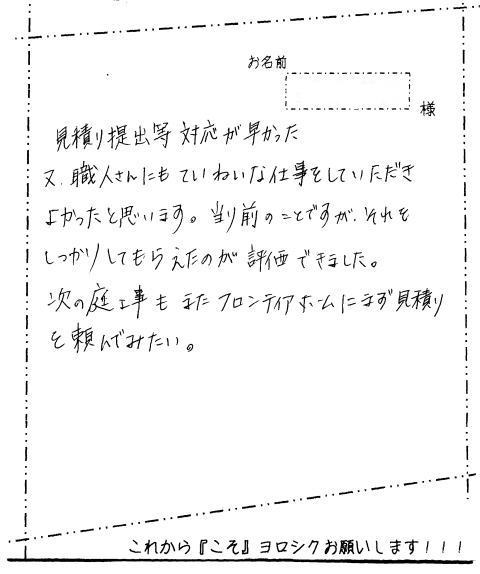 お名前
様
見積り提出等 対応が早かった
又、職人さんにもていねいな仕事をしていただき
よかったと思います。当り前のことですが、それを
しっかりしてもらえたのが評価できました。
次の庭工事もまたフロンティアホームにまず見積り
を頼んでみたい。
これから『こそ』ヨロシクお願いします！！！